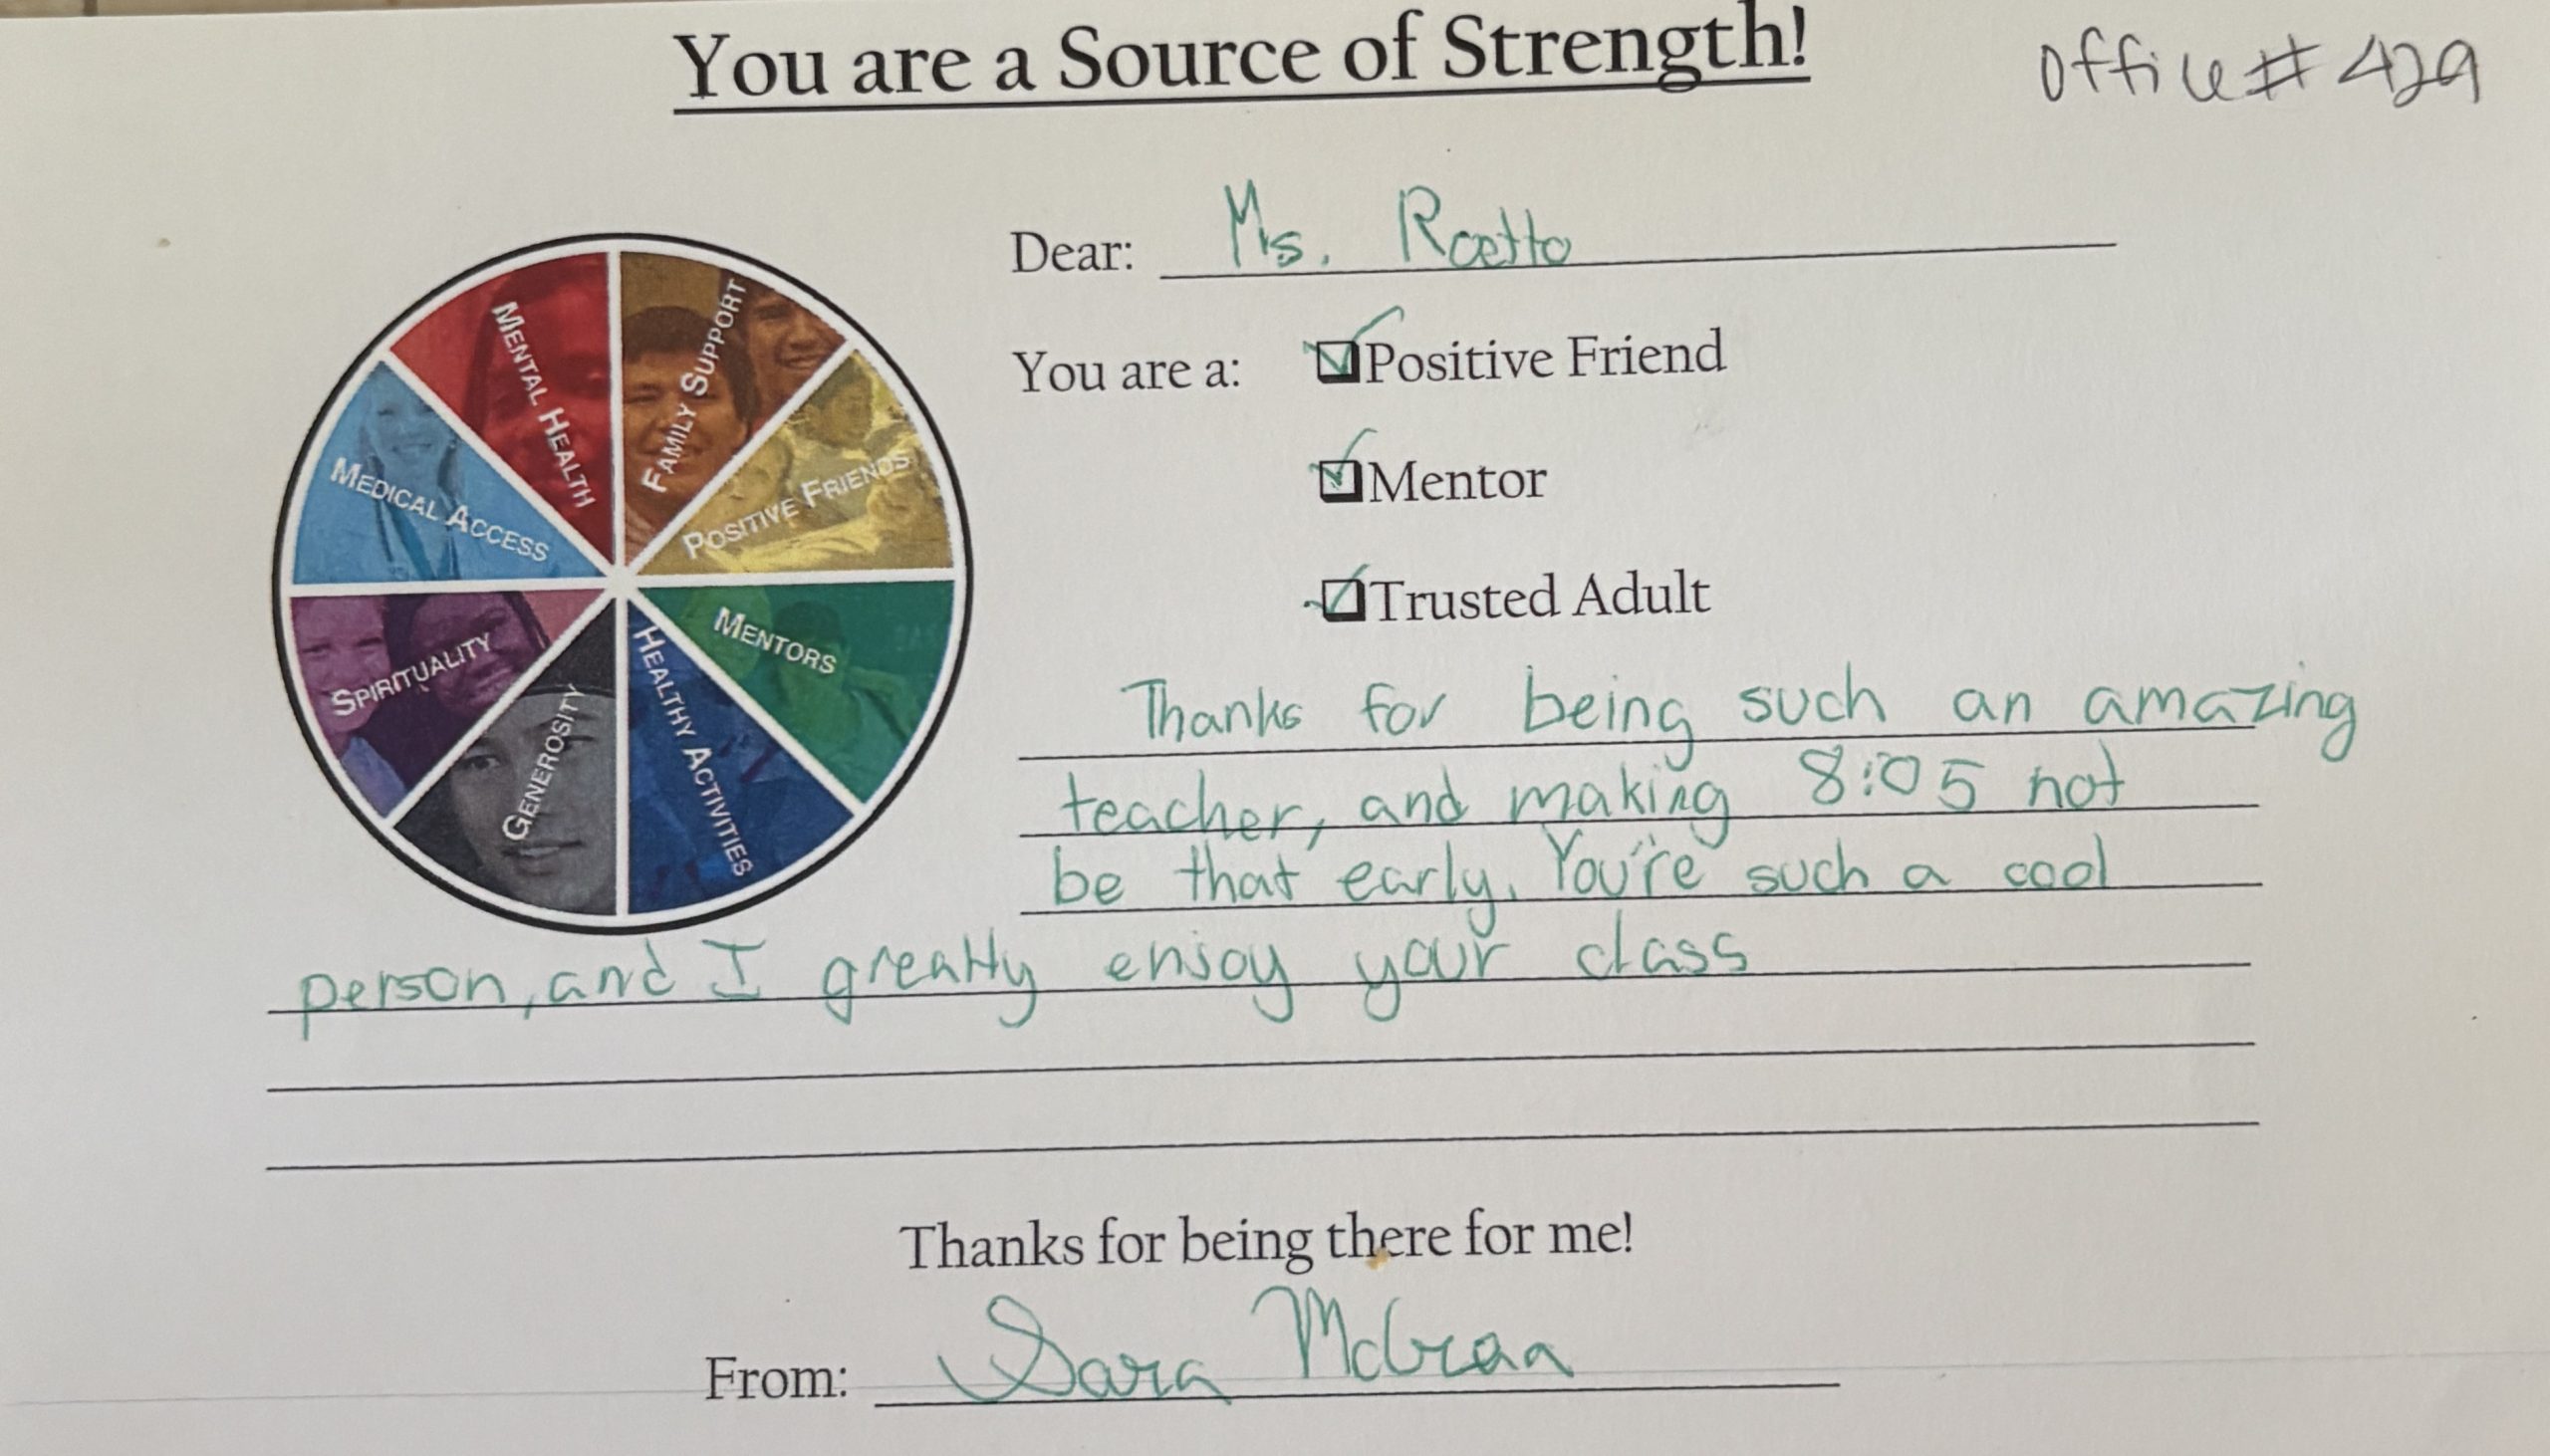 You are a Source of Strength!
Office # 429
Dear: Ms. Roetto
You are a: ☑Positive Friend
☑Mentor
☑Trusted Adult
MENTAL HEALTH
FAMILY SUPPORT
MEDICAL ACCESS
POSITIVE FRIENDS
SPIRITUALITY
MENTORS
GENEROSITY
HEALTHY ACTIVITIES
Thanks for being such an amazing
teacher, and making 8:05 not
be that early. You're such a cool
person, and I greatly enjoy your class
Thanks for being there for me!
From: Sara